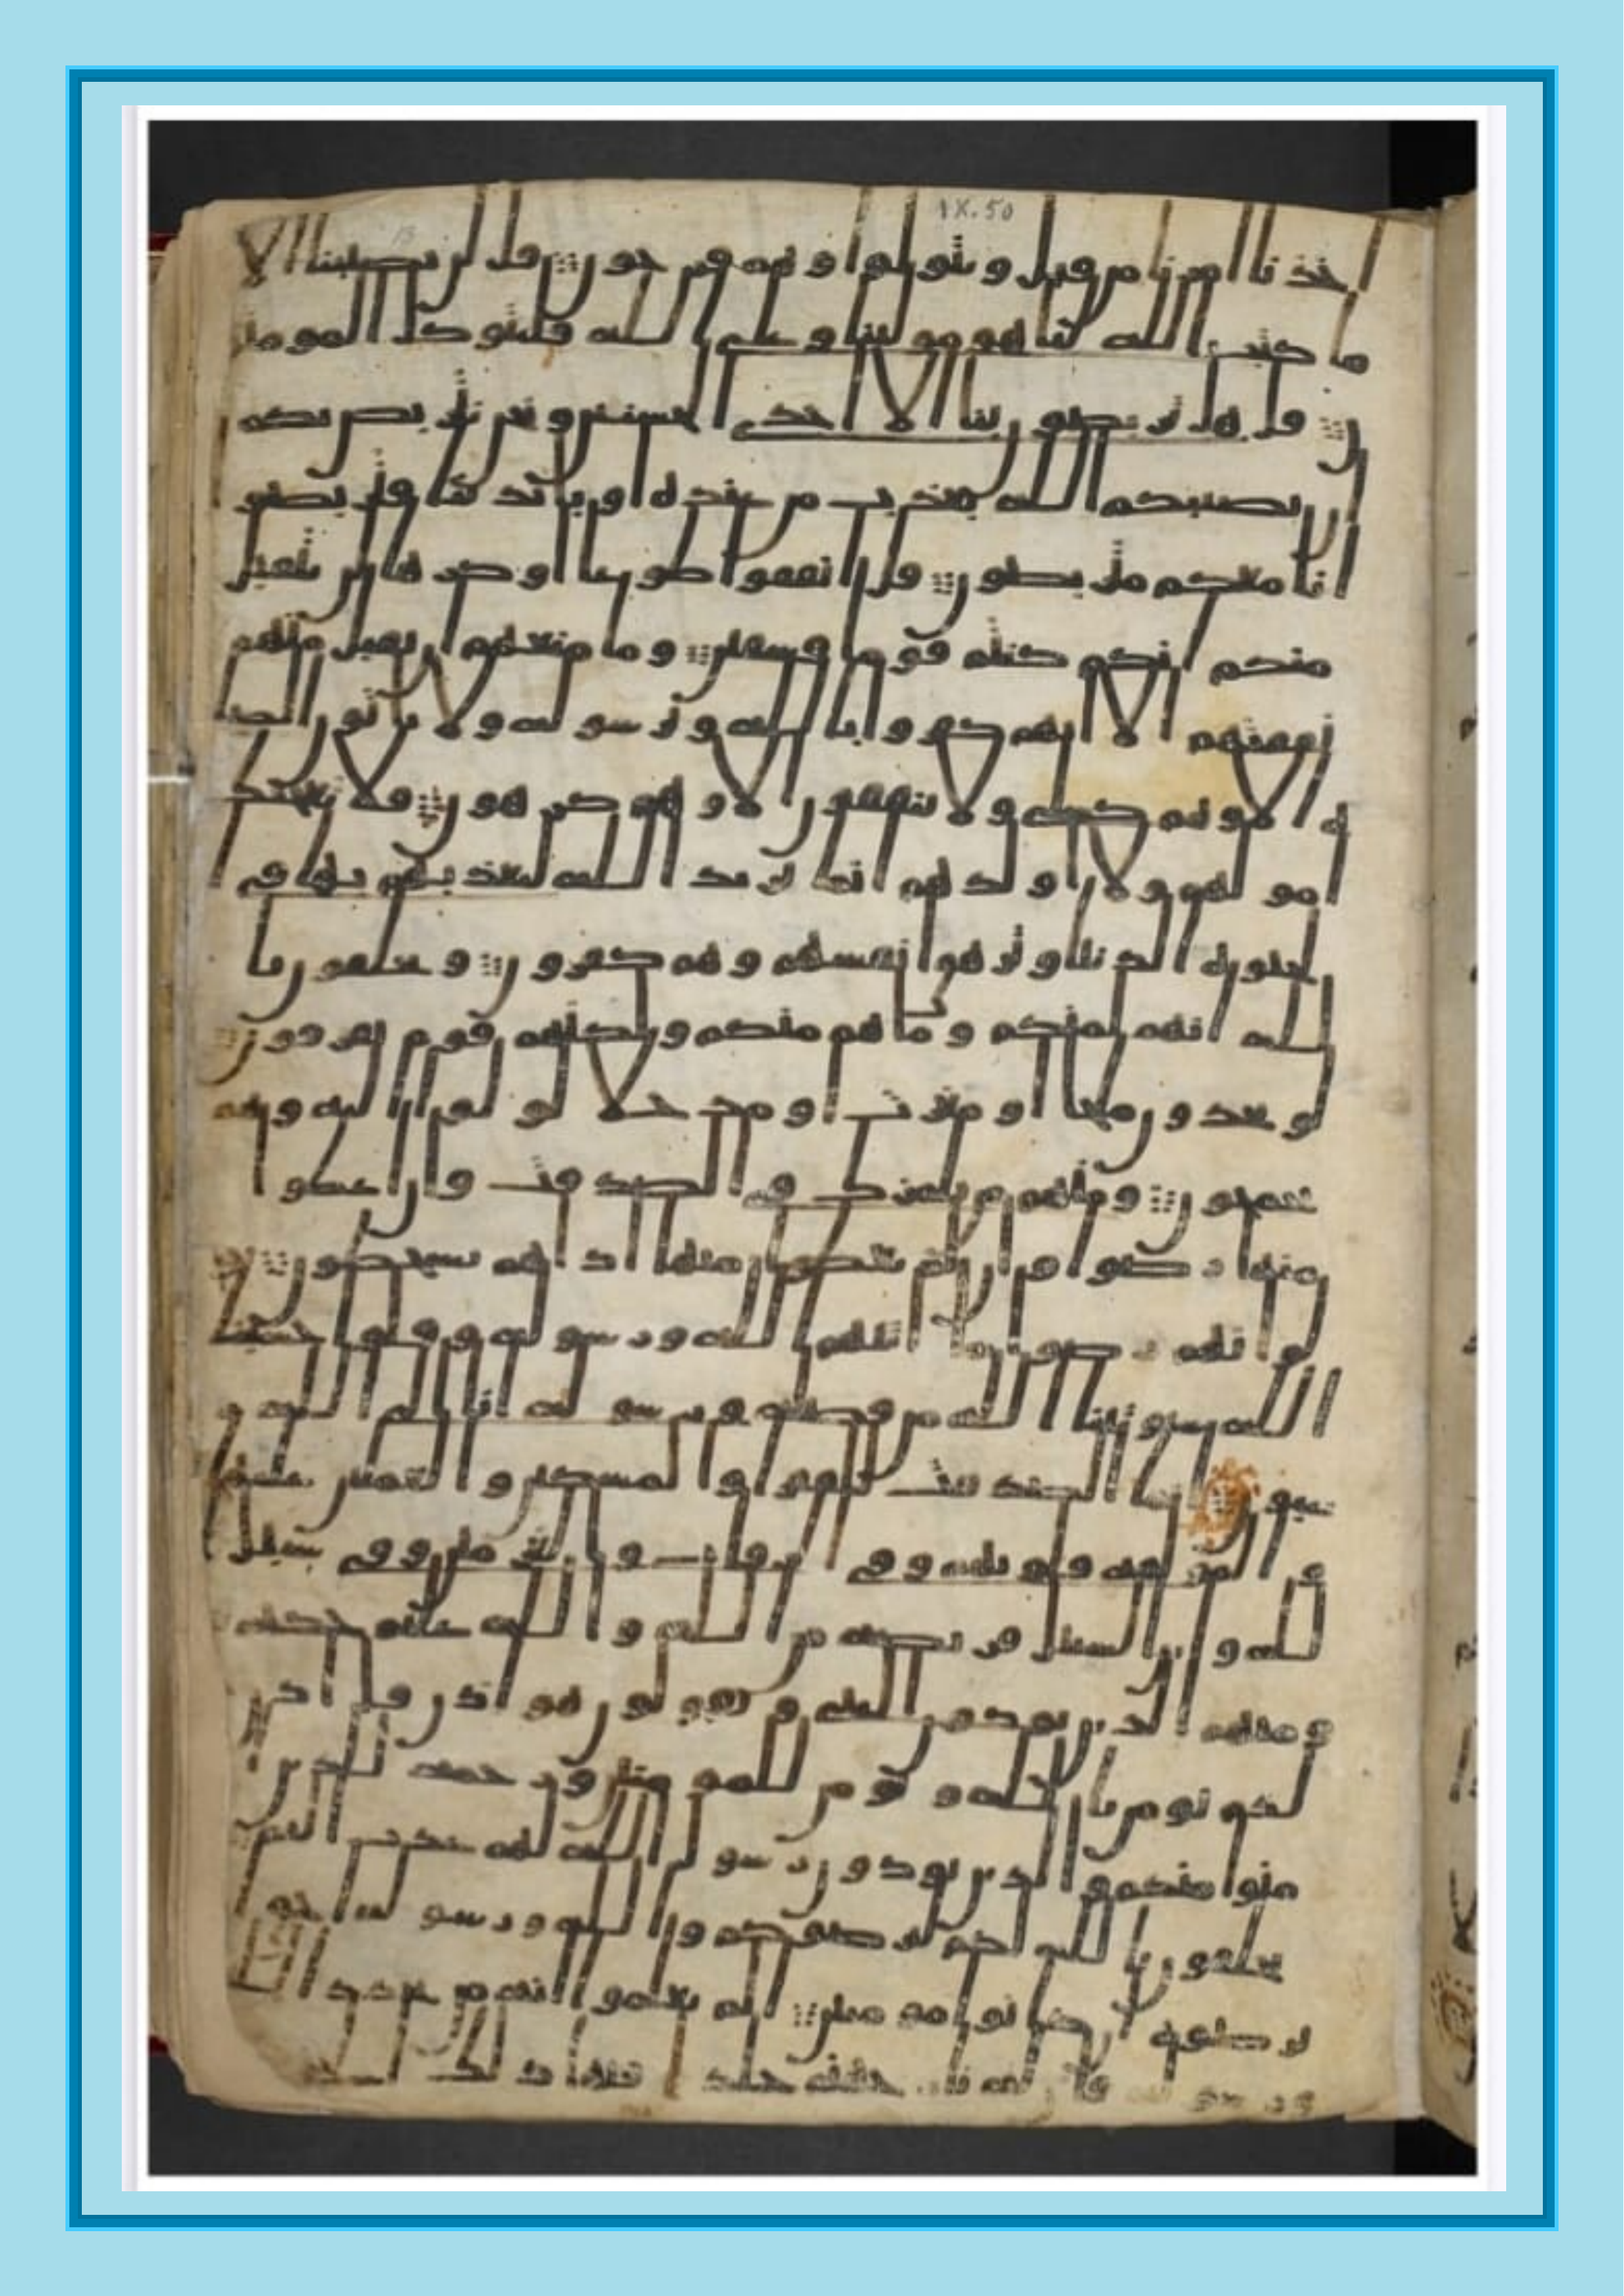 خذنا امرنا من قبل ويتولوا وهم فرحون قل لن يصيبنا الا
ما كتب الله لنا هو مولينا وعلى الله فليتوكل المومنو
ن قل هل تربصون بنا الا احدى الحسنيين ونحن نتربص بكم
ان يصيبكم الله بعذاب من عنده او بايدينا فتربصوا
انا معكم متربصون قل انفقوا طوعا او كرها لن يتقبل
منكم انكم كنتم قوما فسقين وما منعهم ان تقبل منهم
نفقتهم الا انهم كفروا بالله وبرسوله ولا ياتون الصلو
ه الا وهم كسلى ولا ينفقون الا وهم كرهون فلا تعجبك
امولهم ولا اولدهم انما يريد الله ليعذبهم بها في
الحيوه الدنيا وتزهق انفسهم وهم كفرون ويحلفون با
لله انهم لمنكم وما هم منكم ولكنهم قوم يفرقون
لو يجدون ملجا او مغرت او مدخلا لولوا اليه وهم
يجمحون ومنهم من يلمزك في الصدقت فان اعطوا
منها رضوا وان لم يعطوا منها اذا هم يسخطون
ولو انهم رضوا ما اتيهم الله ورسوله وقالوا حسبنا
الله سيوتينا الله من فضله ورسوله انا الى الله ر
غبون انما الصدقت للفقرا والمسكين والعملين عليها
والمولفه قلوبهم وفي الرقاب والغرمين وفي سبيل
الله وابن السبيل فريضه من الله والله عليم حكيم
ومنهم الذين يوذون النبي ويقولون هو اذن قل اذن خير
لكم يومن بالله ويومن للمومنين ورحمه للذين ا
منوا منكم والذين يوذون رسول الله لهم عذاب اليم
يحلفون بالله لكم ليرضوكم والله ورسوله احق ان
يرضوه ان كانوا مومنين الم يعلموا انه من يحدد الله
ورسوله فان له نار جهنم خلدا فيها ذلك